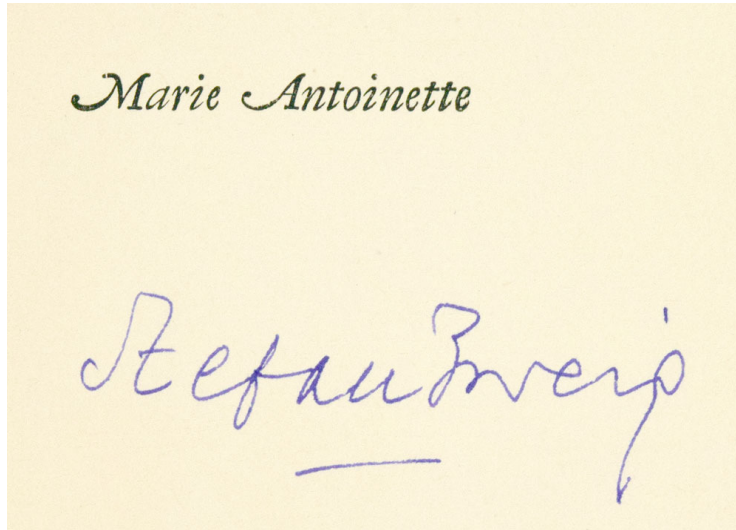 Marie Antoinette
Stefan Zweig